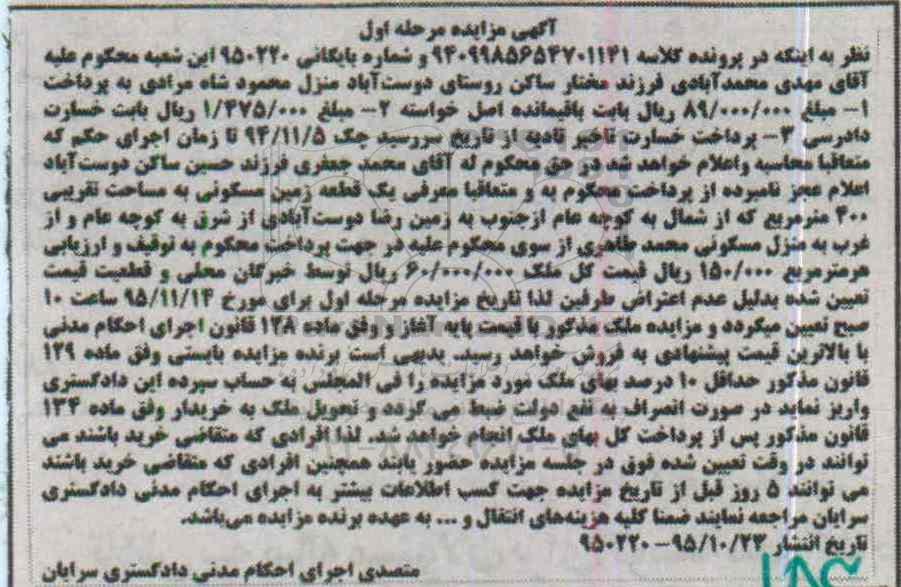 آگهی مزایده مرحله اول
نظر به اینکه در پرونده کلاسه ۹۴۰۹۹۸۵۶۵۴۷۰۱۱۴۱ و شماره بایگانی ۹۵۰۲۲۰ این شعبه محکوم علیه
آقای مهدی محمدآبادی فرزند مختار ساکن روستای دوست‌آباد منزل محمود شاه مرادی به پرداخت
۱- مبلغ ۸۹/۰۰۰/۰۰۰ ریال بابت باقیمانده اصل خواسته ۲- مبلغ ۱/۴۷۵/۰۰۰ ریال بابت خسارت
دادرسی ۳- پرداخت خسارت تاخیر تادیه از تاریخ سررسید چک ۹۴/۱۱/۵ تا زمان اجرای حکم که
متعاقبا محاسبه واعلام خواهد شد در حق محکوم له آقای محمد جعفری فرزند حسین ساکن دوست‌آباد
اعلام عجز نامبرده از پرداخت محکوم به و متعاقبا معرفی یک قطعه زمین مسکونی به مساحت تقریبی
۴۰۰ مترمربع که از شمال به کوچه عام ازجنوب به زمین رضا دوست‌آبادی از شرق به کوچه عام و از
غرب به منزل مسکونی محمد طاهری از سوی محکوم علیه در جهت پرداخت محکوم به توقیف و ارزیابی
هرمترمربع ۱۵۰/۰۰۰ ریال قیمت کل ملک ۶۰/۰۰۰/۰۰۰ ریال توسط خبرگان محلی و قطعیت قیمت
تعیین شده بدلیل عدم اعتراض طرفین لذا تاریخ مزایده مرحله اول برای مورخ ۹۵/۱۱/۱۴ ساعت ۱۰
صبح تعیین میگردد و مزایده ملک مذکور با قیمت پایه آغاز و وفق ماده ۱۲۸ قانون اجرای احکام مدنی
با بالاترین قیمت پیشنهادی به فروش خواهد رسید. بدیهی است برنده مزایده بایستی وفق ماده ۱۲۹
قانون مذکور حداقل ۱۰ درصد بهای ملک مورد مزایده را فی المجلس به حساب سپرده این دادگستری
واریز نماید در صورت انصراف به نفع دولت ضبط می گردد و تحویل ملک به خریدار وفق ماده ۱۳۴
قانون مذکور پس از پرداخت کل بهای ملک انجام خواهد شد. لذا افرادی که متقاضی خرید باشند می
توانند در وقت تعیین شده فوق در جلسه مزایده حضور یابند همچنین افرادی که متقاضی خرید باشند
می توانند ۵ روز قبل از تاریخ مزایده جهت کسب اطلاعات بیشتر به اجرای احکام مدنی دادگستری
سرایان مراجعه نمایند ضمنا کلیه هزینه‌های انتقال و ... به عهده برنده مزایده می‌باشد.
تاریخ انتشار ۹۵/۱۰/۲۳- ۹۵۰۲۲۰
متصدی اجرای احکام مدنی دادگستری سرایان